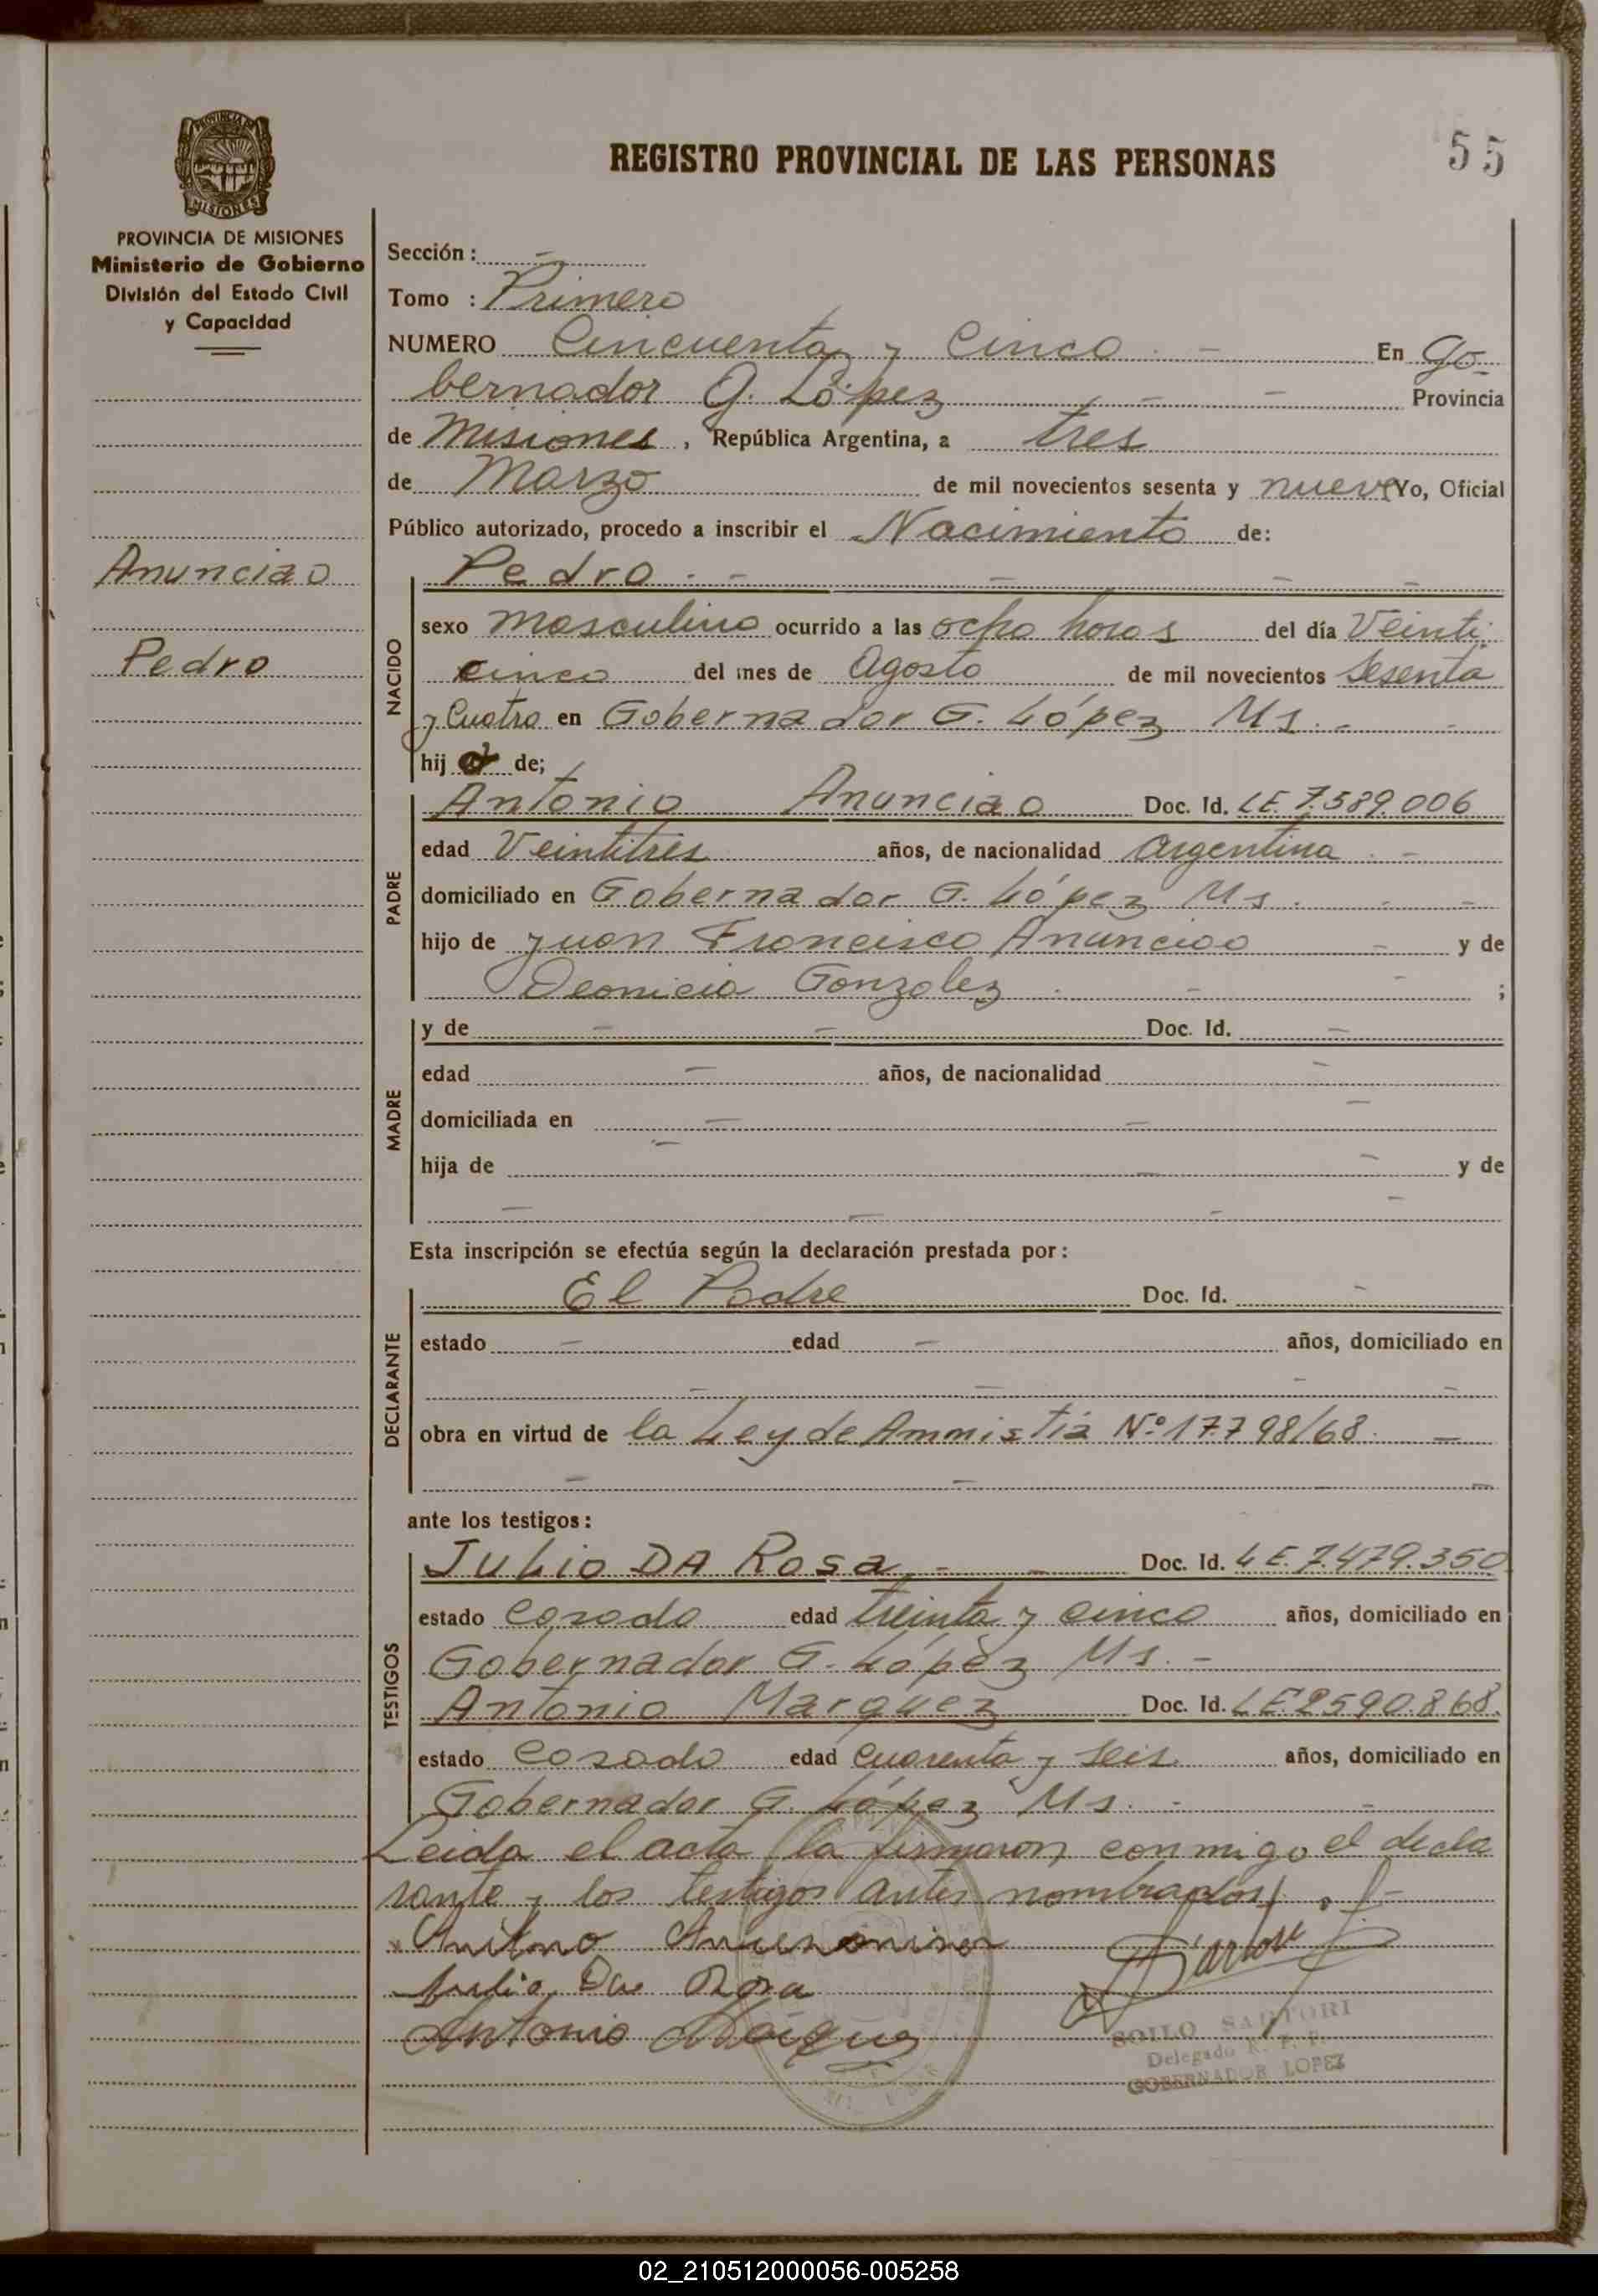 REGISTRO PROVINCIAL DE LAS PERSONAS
55
PROVINCIA DE MISIONES
PROVINCIA DE MISIONES
Ministerio de Gobierno
División del Estado Civil
y Capacidad
Anunciao
Pedro
Sección: -
Tomo : Primero
NUMERO Cincuenta y Cinco - En Go-
bernador G. López - - Provincia
de Misiones, República Argentina, a tres
de Marzo de mil novecientos sesenta y nueve Yo, Oficial
Público autorizado, procedo a inscribir el Nacimiento de:
NACIDO
Pedro - - - -
sexo masculino ocurrido a las ocho horas del día Veinti-
cinco del mes de Agosto de mil novecientos Sesenta
y Cuatro en Gobernador G. López Ms. - -
hijo de;
PADRE
Antonio Anunciao Doc. Id. LE. 7.589.006
edad Veintitres años, de nacionalidad Argentina -
domiciliado en Gobernador G. López Ms. - -
hijo de Juan Francisco Anunciao - y de
Deonicia Gonzalez - - ;
MADRE
y de - - Doc. Id. -
edad - años, de nacionalidad -
domiciliada en - - -
hija de - - - y de
- - - -
Esta inscripción se efectúa según la declaración prestada por:
DECLARANTE
El Padre Doc. Id. -
estado - edad - años, domiciliado en
- - - -
obra en virtud de la Ley de Ammistia Nº 17.798/68. -
- - -
ante los testigos:
TESTIGOS
Julio DA Rosa - - Doc. Id. LE. 7.479.350
estado Casado edad treinta y cinco años, domiciliado en
Gobernador G. López Ms. -
Antonio Marquez Doc. Id. LE 2590.868.
estado Casado edad cuarenta y seis años, domiciliado en
Gobernador G. López Ms. - -
Leida el acta la firmaron conmigo el decla
rante y los testigos antes nombrados. -
Julio Da Rosa
Antonio
SOILO SARTORI
Delegado R. P. P.
GOBERNADOR LOPEZ
02_210512000056-005258